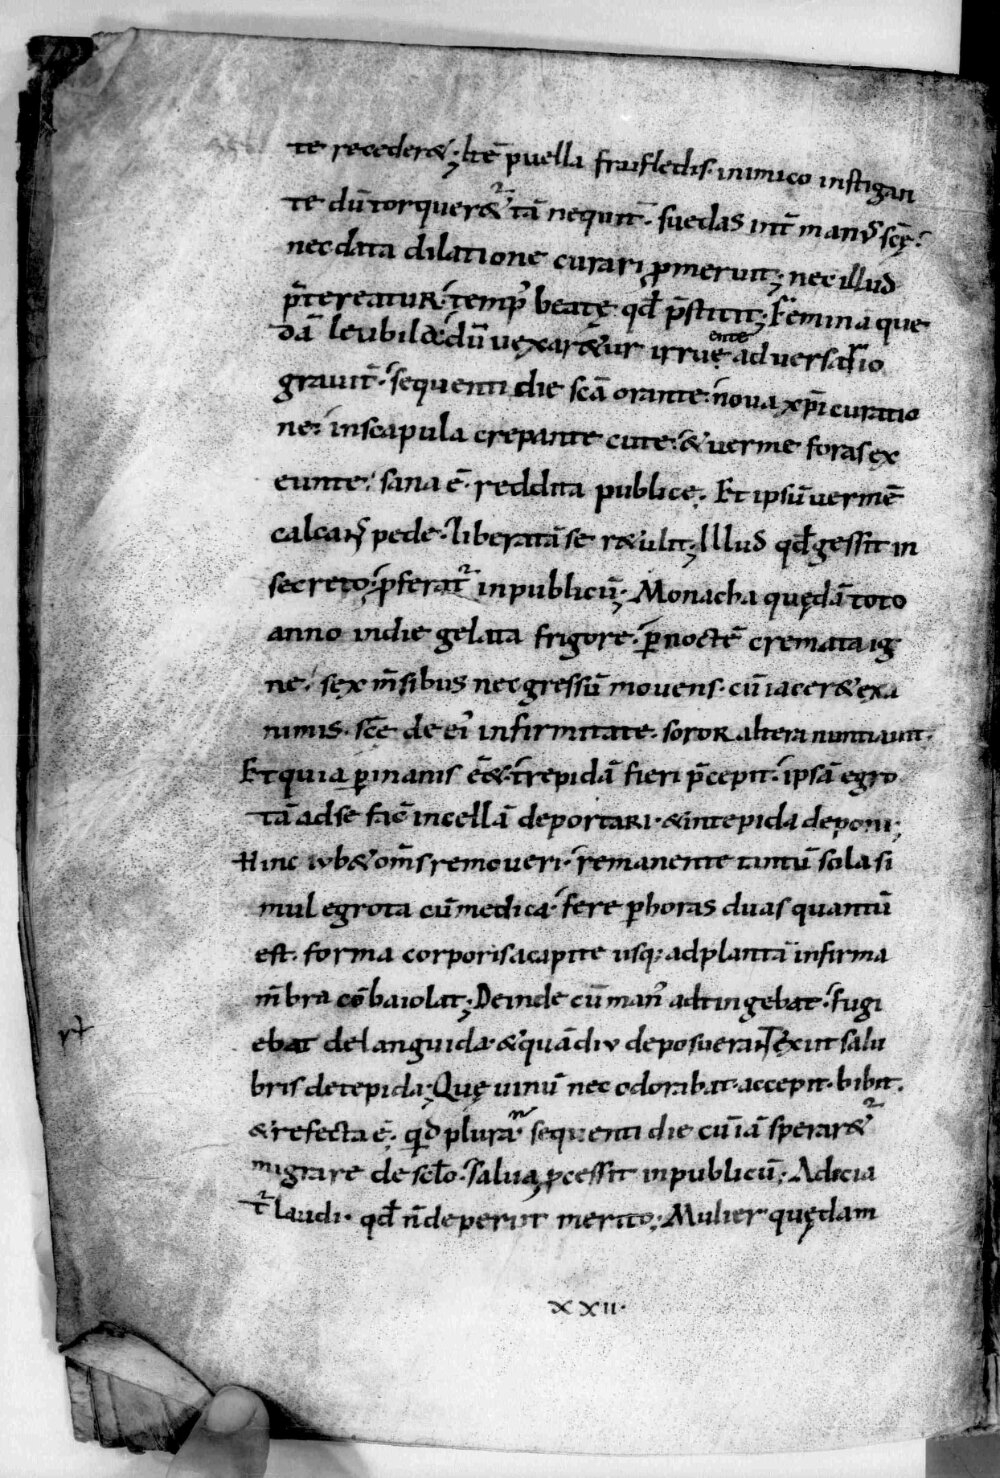 te receder&; Itē puella fraifledis· inimico instigan
te dū torquer&ur tā nequit̄· suedas int̄ man᷒ scę·
nec data dilatione curari ꝓmeruit; nec illud
p̄tereatuR· temp᷒ beatę· qđ p̄stitit; Femina que
dā leubil& dū uexar&ur irruente aduersario
grauit̄· sequenti die scā orante· noua xp̄i curatio
ne· in scapula crepante cute· & uerme foras ex
eunte· sana ē· reddita publice; Et ipsū uermē
calcans pede· liberatā se r&ulit; Illud qđ gessit in
secreto· ꝓferat᷒ in publicū; Monacha quędā toto
anno in die gelata frigore· ꝑ noctē cremata ig
ne· sex m̄sibus nec gressū mouens· cū iacer& exa
nimis· scē de ei᷒ infirmitate· soror altera nuntiauit·
Et quia ꝑ inanis ēē& trepidā fieri p̄cepit· ipsā egro
tā ad se fac̄ in cellā deportaRi· & in tepida deponi;
Hinc iub& om̄s remoueri· remanente tantū sola si
mul egrota cū medica· fere ꝑ horas duas quantū
est· forma corporis a capite usq; ad plantā infirma
m̄bra cōbaiolat; Deinde cū man᷒ adtingebat· fugi
ebat de languida· & quādiu deposuerat· Exiit salu
bris de tepida; Quę uinū nec odorabat· accepit· bibit·
& refecta ē· qid plura sequenti die cū iā sperar&ur
migrare de sclo· salua ꝓcessit in publicū; Adicia
t᷒ laudi· qđ n̄ deperiit merito; Mulier quędam
rt
xxii·